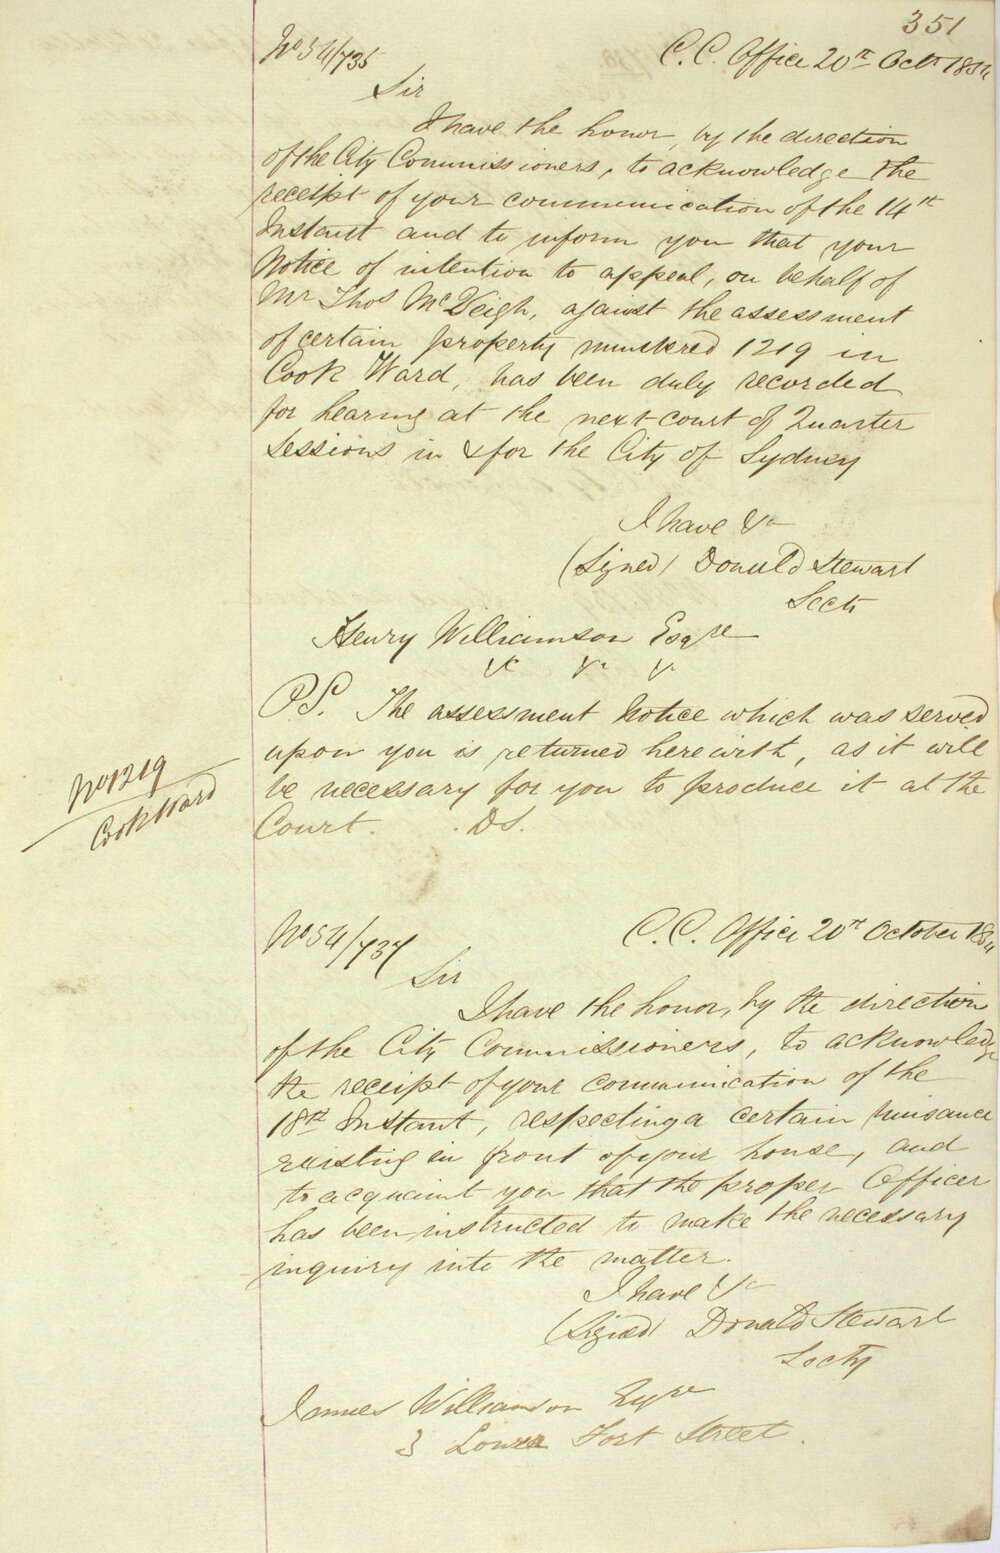 351
No 54/735 C. C. Office 20th Octr 1854
Sir
I have the honor, by the direction
of the City Commissioners, to acknowledge the
receipt of your communication of the 14th
Instant and to inform you that your
Notice of intention to appeal, on behalf of
Mr Thos McVeigh, against the assessment
of certain property numbered 1219 in
Cook Ward, has been duly recorded
for hearing at the next court of Quarter
Sessions in & for the City of Sydney
I have &c
(Signed) Donald Stewart
Secty
Henry Williamson Esqre
&c &c &c
P.S. The assessment Notice which was served
upon you is returned herewith, as it will
be necessary for you to produce it at the
Court. D S.
No 1219
Cook Ward
No 54/737 C. C. Office 20th October 1854
Sir
I have the honor, by the direction
of the City Commissioners, to acknowledge
the receipt of your communication of the
18th Instant, respecting a certain nuisance
existing in front of your house, and
to acquaint you that the proper Officer
has been instructed to make the necessary
inquiry into the matter.
I have &c
(Signed) Donald Stewart
Secty
James Williamson Esqre
3 Lower Fort Street.